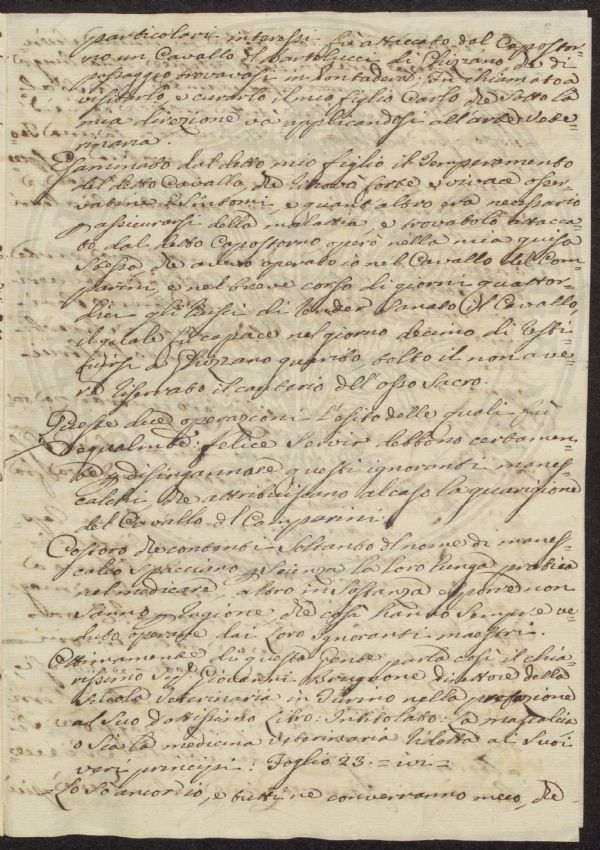 particolari interessi fù attaccato dal Capostor=
no un Cavallo del Bartolucci di Ghizzano che di
passaggio trovavasi in Pontadera. Fu chiamato a
visitarlo, e curarlo il mio figlio Carlo che Sotto la
mia direzione va applicandosi all'arte Vete=
rinaria.
Esaminato dal detto mio figlio il Temperamento
del detto Cavallo, che trovò forte, e vivace osser=
vatine i Sintomi, e quant'altro era necessario
p assicurarsi della malattia, e trovatolo attacca=
to dal detto Capostorno, operò nella mia guisa
Stessa che avevo operato io nel Cavallo del Cam=
parini, e nel breve corso di giorni quattor=
dici gli riescì di render Sanato il Cavallo,
il quale fù capace nel giorno decimo di resti=
tuirsi a Ghizzano guarito, tolto il non ave=
re riserrato il cauterio dell'osso Sacro.
Queste due operazioni l'esito delle quali fù
egualmte felice Servir debbono certamen=
te p disingannare questi ignoranti manes=
calchi, che attribuiscano al caso la guarigione
del Cavallo del Camparini.
Costoro che contenti Soltanto del nome di manes=
calco Spacciano p Scienza la loro lunga pratica
nel medicare, altro in Sostanza esporre non
Sanno p ragione che così hanno Sempre ve=
duto operare dai Loro ignoranti maestri.
Ottimamente di questa Gente parla così il chia=
rissimo Sigr Giovanni Brugnone direttore della
Scuola Veterinaria in Turino nella prefazione
al Suo dottissimo Libro: Intitolato: La mascalcia
o Sia la medicina veterinaria ridotta ai Suoi
veri principj: Foglio 23. = ivi =
= Lo So ancor io, e tutti ne converranno meco, che